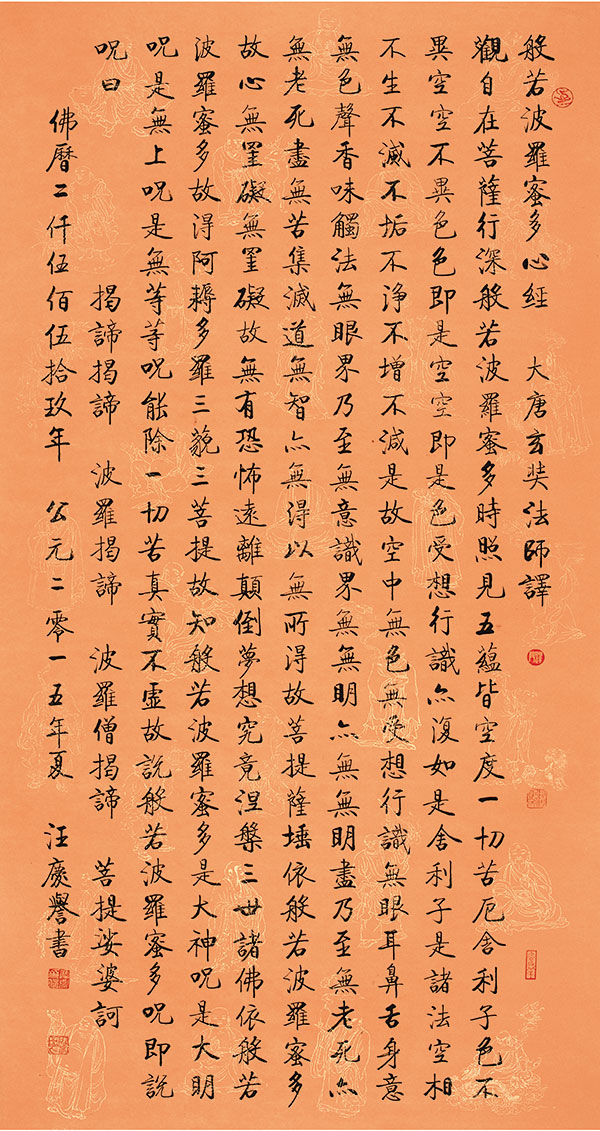 般若波羅蜜多心經 大唐玄奘法師譯
觀自在菩薩行深般若波羅蜜多時照見五蘊皆空度一切苦厄舍利子色不
異空空不異色色即是空空即是色受想行識亦復如是舍利子是諸法空相
不生不滅不垢不淨不增不減是故空中無色無受想行識無眼耳鼻舌身意
無色聲香味觸法無眼界乃至無意識界無無明亦無無明盡乃至無老死亦
無老死盡無苦集滅道無智亦無得以無所得故菩提薩埵依般若波羅蜜多
故心無罣礙無罣礙故無有恐怖遠離顛倒夢想究竟涅槃三世諸佛依般若
波羅蜜多故得阿耨多羅三藐三菩提故知般若波羅蜜多是大神呪是大明
呪是無上呪是無等等呪能除一切苦真實不虛故說般若波羅蜜多呪即說
呪曰 揭諦揭諦 波羅揭諦 波羅僧揭諦 菩提娑婆訶
佛曆二仟伍佰伍拾玖年 公元二零一五年夏 汪慶譽書